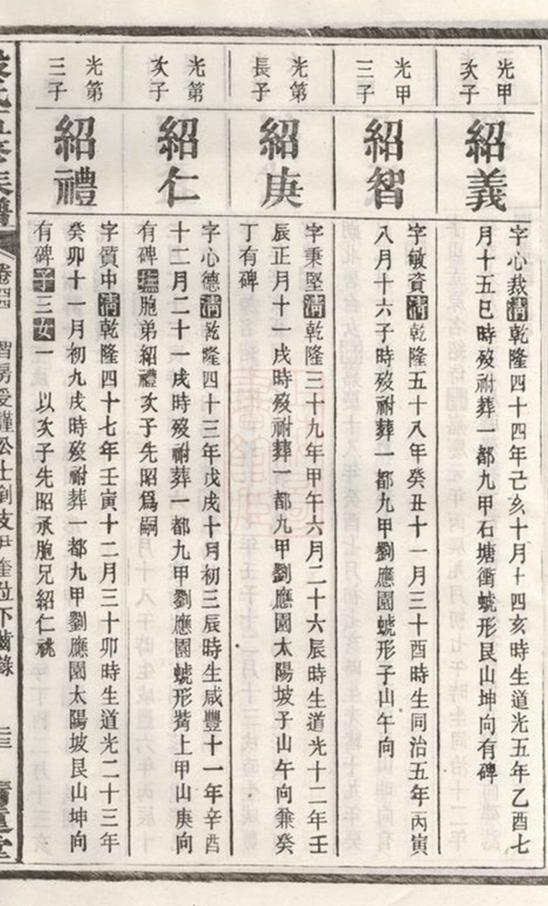 光甲次子
紹義
字心裁清乾隆四十四年己亥十月十四亥時生道光五年乙酉七
月十五巳時歿祔葬一都九甲石塘衝虩形艮山坤向有碑
光甲三子
紹智
字敏資清乾隆五十八年癸丑十一月三十酉時生同治五年丙寅
八月十六子時歿祔葬一都九甲劉應園虩形子山午向
光第長子
紹庚
字秉堅清乾隆三十九年甲午六月二十六辰時生道光十二年壬
辰正月十一戌時歿祔葬一都九甲劉應園太陽坡子山午向兼癸
丁有碑
光第次子
紹仁
字心德清乾隆四十三年戊戌十月初三辰時生咸豐十一年辛酉
十二月二十一戌時歿祔葬一都九甲劉應園虩形嘴上甲山庚向
有碑撫胞弟紹禮次子先昭爲嗣
光第三子
紹禮
字質中清乾隆四十七年壬寅十二月三十卯時生道光二十三年
癸卯十一月初九戌時歿祔葬一都九甲劉應園太陽坡艮山坤向
有碑子三女一 以次子先昭承胞兄紹仁祧
氏五修族譜
卷四四